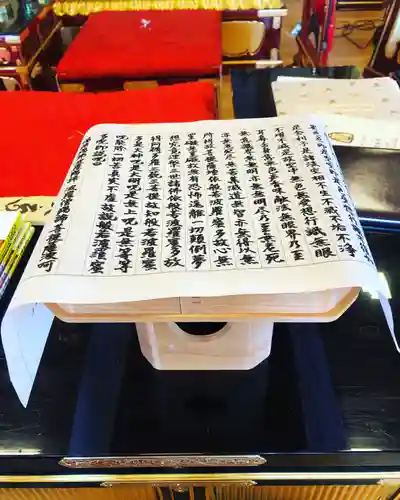 舍利子是諸法空相不生不滅不垢不淨
不増不減是故空中無色無受想行識無眼
耳鼻舌身意無色聲香味觸法無眼界乃至
無意識界無無明亦無無明盡乃至無老死
亦無老死盡無苦集滅道無智亦無得以無
所得故菩提薩埵依般若波羅蜜多故心無
罣礙無罣礙故無有恐怖遠離一切顛倒夢
想究竟涅槃三世諸佛依般若波羅蜜多故
得阿耨多羅三藐三菩提故知般若波羅蜜
多是大神呪是大明呪是無上呪是無等等
呪能除一切苦真實不虚故説般若波羅蜜
多呪即説呪曰
羯諦羯諦波羅羯諦波羅僧羯諦菩提薩婆訶